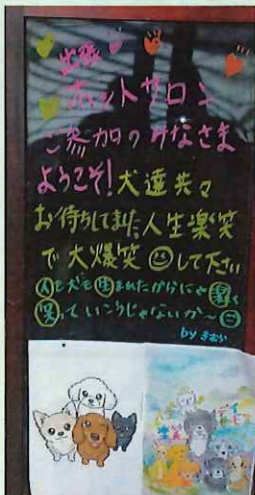 出張
ホットサロン
ご参加のみなさま
ようこそ!犬達共々
お待ちしてました人生楽笑
で大爆笑😊して下さい
人も犬も生まれたからにゃ
笑っていこうじゃないか〜
by きむら